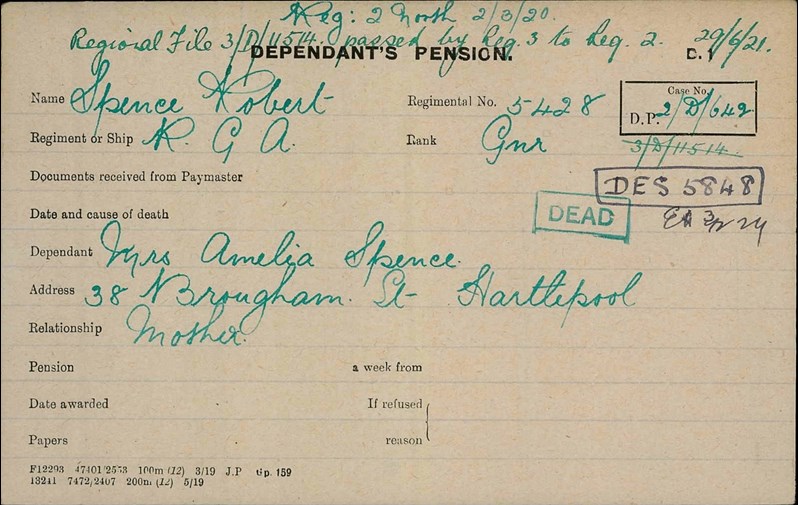 Reg: 2 North 2/3/20.
Regional File 3/D/11514. passed by Reg. 3 to Reg. 2. 29/6/21.
DEPENDANT'S PENSION. D. 1
Name Spence Robert Regimental No. 5428 Case No.
D.P. 2/D/642
Regiment or Ship R. G. A. Rank Gnr 3/D/11514.
Documents received from Paymaster DES 5848
Date and cause of death DEAD
Dependant Mrs Amelia Spence.
Address 38 N Brougham. St Hartlepool
Relationship Mother.
Pension a week from
Date awarded If refused
Papers reason
F12293 47401/2553 100m (12) 3/19 J.P Gp. 159
13241 7472/2407 200m (12) 5/19